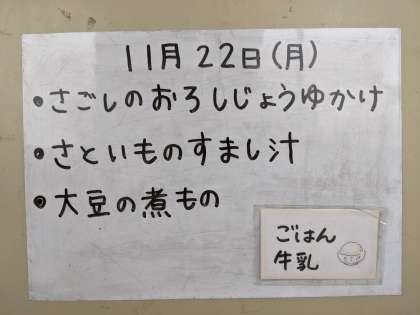 11月22日(月)
•さごしのおろしじょうゆかけ
•さといものすまし汁
•大豆の煮もの
ごはん
牛乳